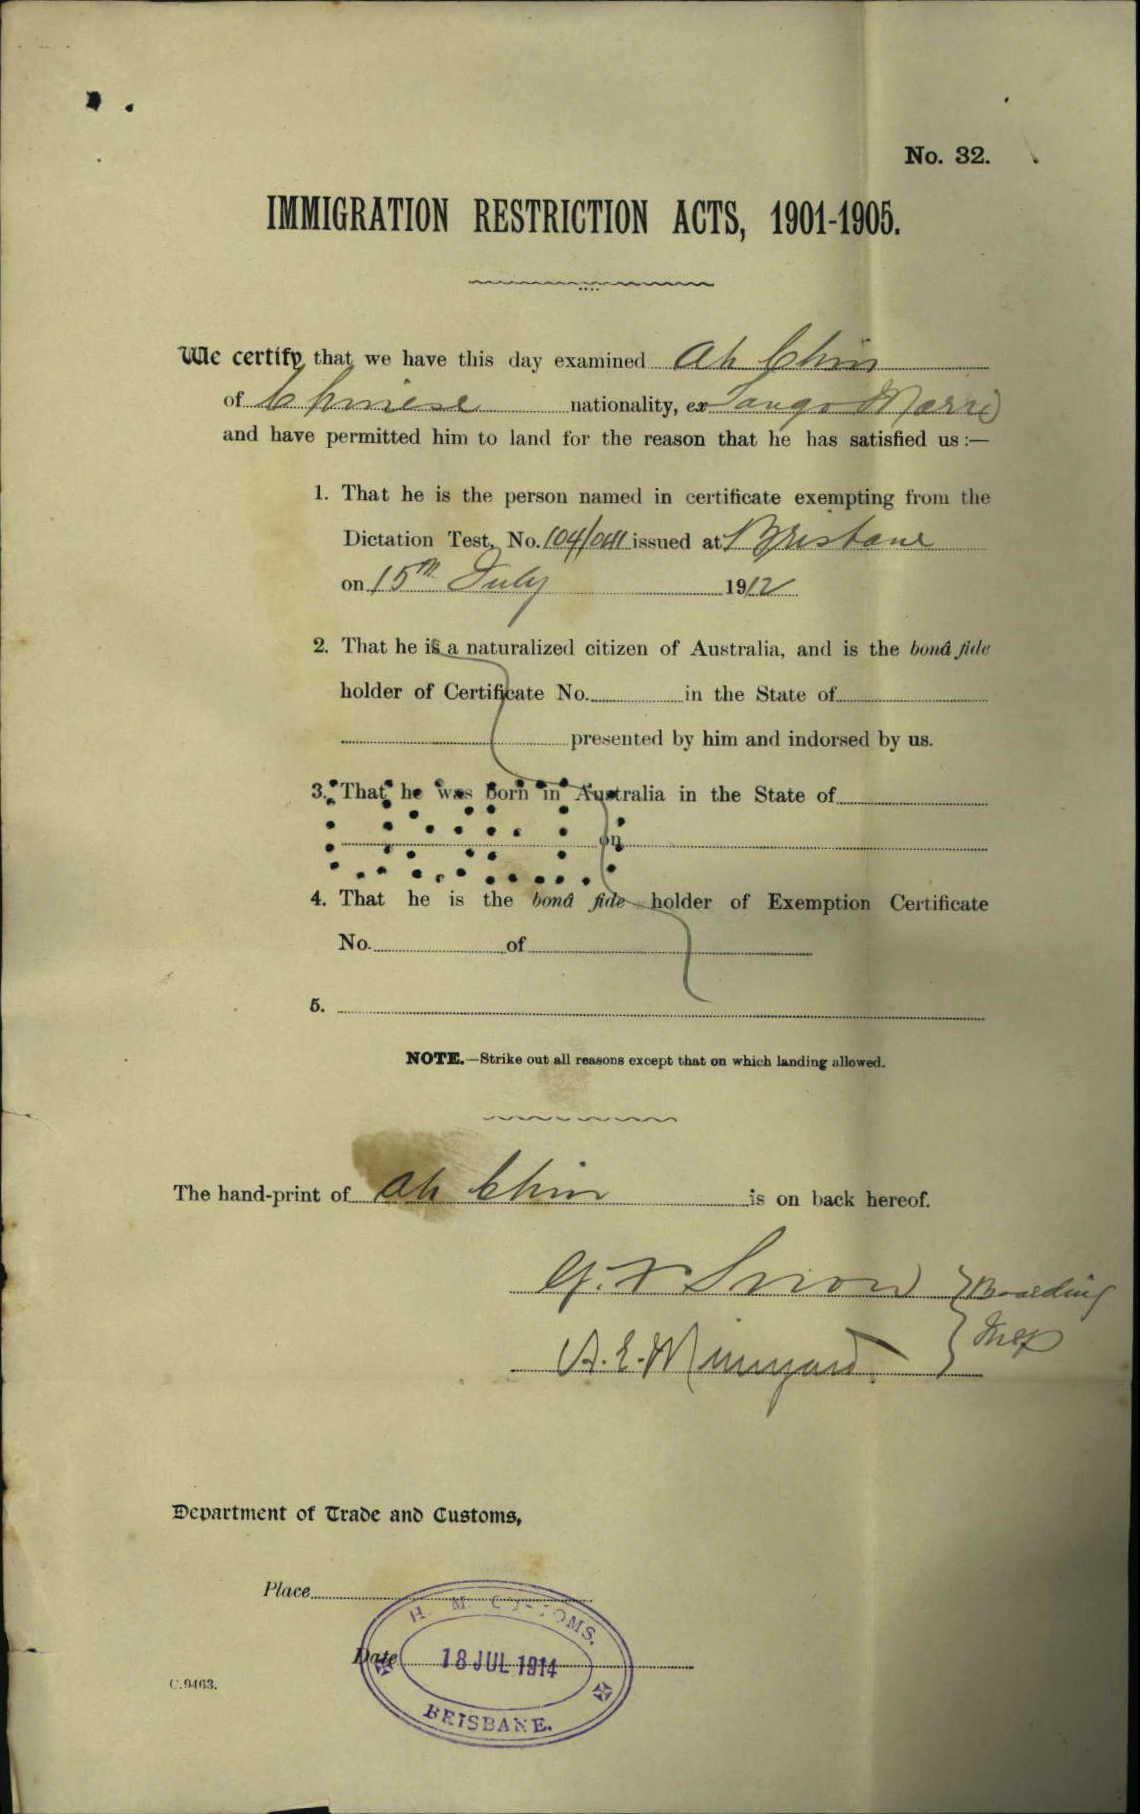 No. 32.
IMMIGRATION RESTRICTION ACTS, 1901-1905.
We certify that we have this day examined Ah Chin
of Chinese nationality, ex Tango Marru
and have permitted him to land for the reason that he has satisfied us :—
1. That he is the person named in certificate exempting from the
Dictation Test, No. 104/ issued at Brisbane
on 15th July 1912
2. That he is a naturalized citizen of Australia, and is the bonâ fide
holder of Certificate No. in the State of
presented by him and indorsed by us.
3. That he was born in Australia in the State of
on
4. That he is the bonâ fide holder of Exemption Certificate
No. of
5.
NOTE.—Strike out all reasons except that on which landing allowed.
The hand-print of Ah Chin is on back hereof.
Snow } Boarding
A. E. Minnyard. } Insp
Department of Trade and Customs,
Place
H. M. CUSTOMS.
Date 18 JUL 1914
C.9463.
BRISBANE.